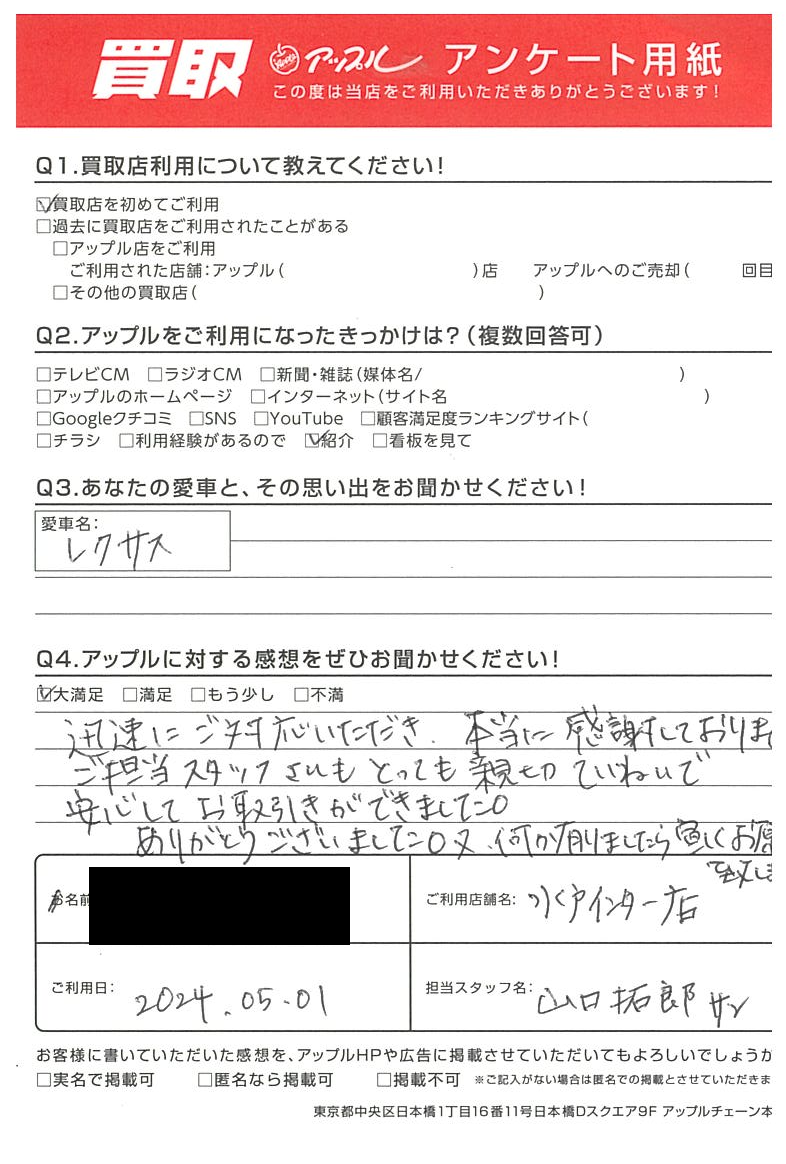 買取 アップル アンケート用紙
この度は当店をご利用いただきありがとうございます!
Q1.買取店利用について教えてください!
☑買取店を初めてご利用
□過去に買取店をご利用されたことがある
□アップル店をご利用
ご利用された店舗:アップル( )店 アップルへのご売却( 回目
□その他の買取店( )
Q2.アップルをご利用になったきっかけは?(複数回答可)
□テレビCM □ラジオCM □新聞・雑誌(媒体名/ )
□アップルのホームページ □インターネット(サイト名 )
□Googleクチコミ □SNS □YouTube □顧客満足度ランキングサイト(
□チラシ □利用経験があるので ☑紹介 □看板を見て
Q3.あなたの愛車と、その思い出をお聞かせください!
愛車名:
レクサス
Q4.アップルに対する感想をぜひお聞かせください!
☑大満足 □満足 □もう少し □不満
迅速にご対応いただき、本当に感謝しておりま
ご担当スタッフさんもとっても親切ていねいで
安心してお取引きができました。
ありがとうございました。又、何か有りましたら宜しくお願
致しま
お名前 ご利用店舗名: 水戸インター店
ご利用日: 2024.05.01 担当スタッフ名: 山口拓郎サン
お客様に書いていただいた感想を、アップルHPや広告に掲載させていただいてもよろしいでしょうか
□実名で掲載可 □匿名なら掲載可 □掲載不可 ※ご記入がない場合は匿名での掲載とさせていただきま
東京都中央区日本橋1丁目16番11号日本橋Dスクエア9F アップルチェーン本